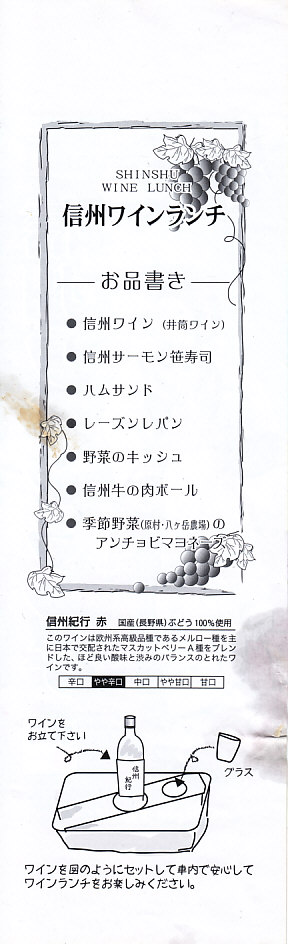 SHINSHU
WINE LUNCH
信州ワインランチ
お品書き
● 信州ワイン (井筒ワイン)
● 信州サーモン笹寿司
● ハムサンド
● レーズンレパン
● 野菜のキッシュ
● 信州牛の肉ボール
● 季節野菜(原村・八ヶ岳農場)の
アンチョビマヨネーズ
信州紀行 赤 国産(長野県)ぶどう100%使用
このワインは欧州系高級品種であるメルロー種を主
に日本で交配されたマスカットベリーA種をブレン
ドした、ほど良い酸味と渋みのバランスのとれたワ
インです。
辛口 やや辛口 中口 やや甘口 甘口
ワインを
お立て下さい
信州
紀行
グラス
ワインを図のようにセットして車内で安心して
ワインランチをお楽しみください。